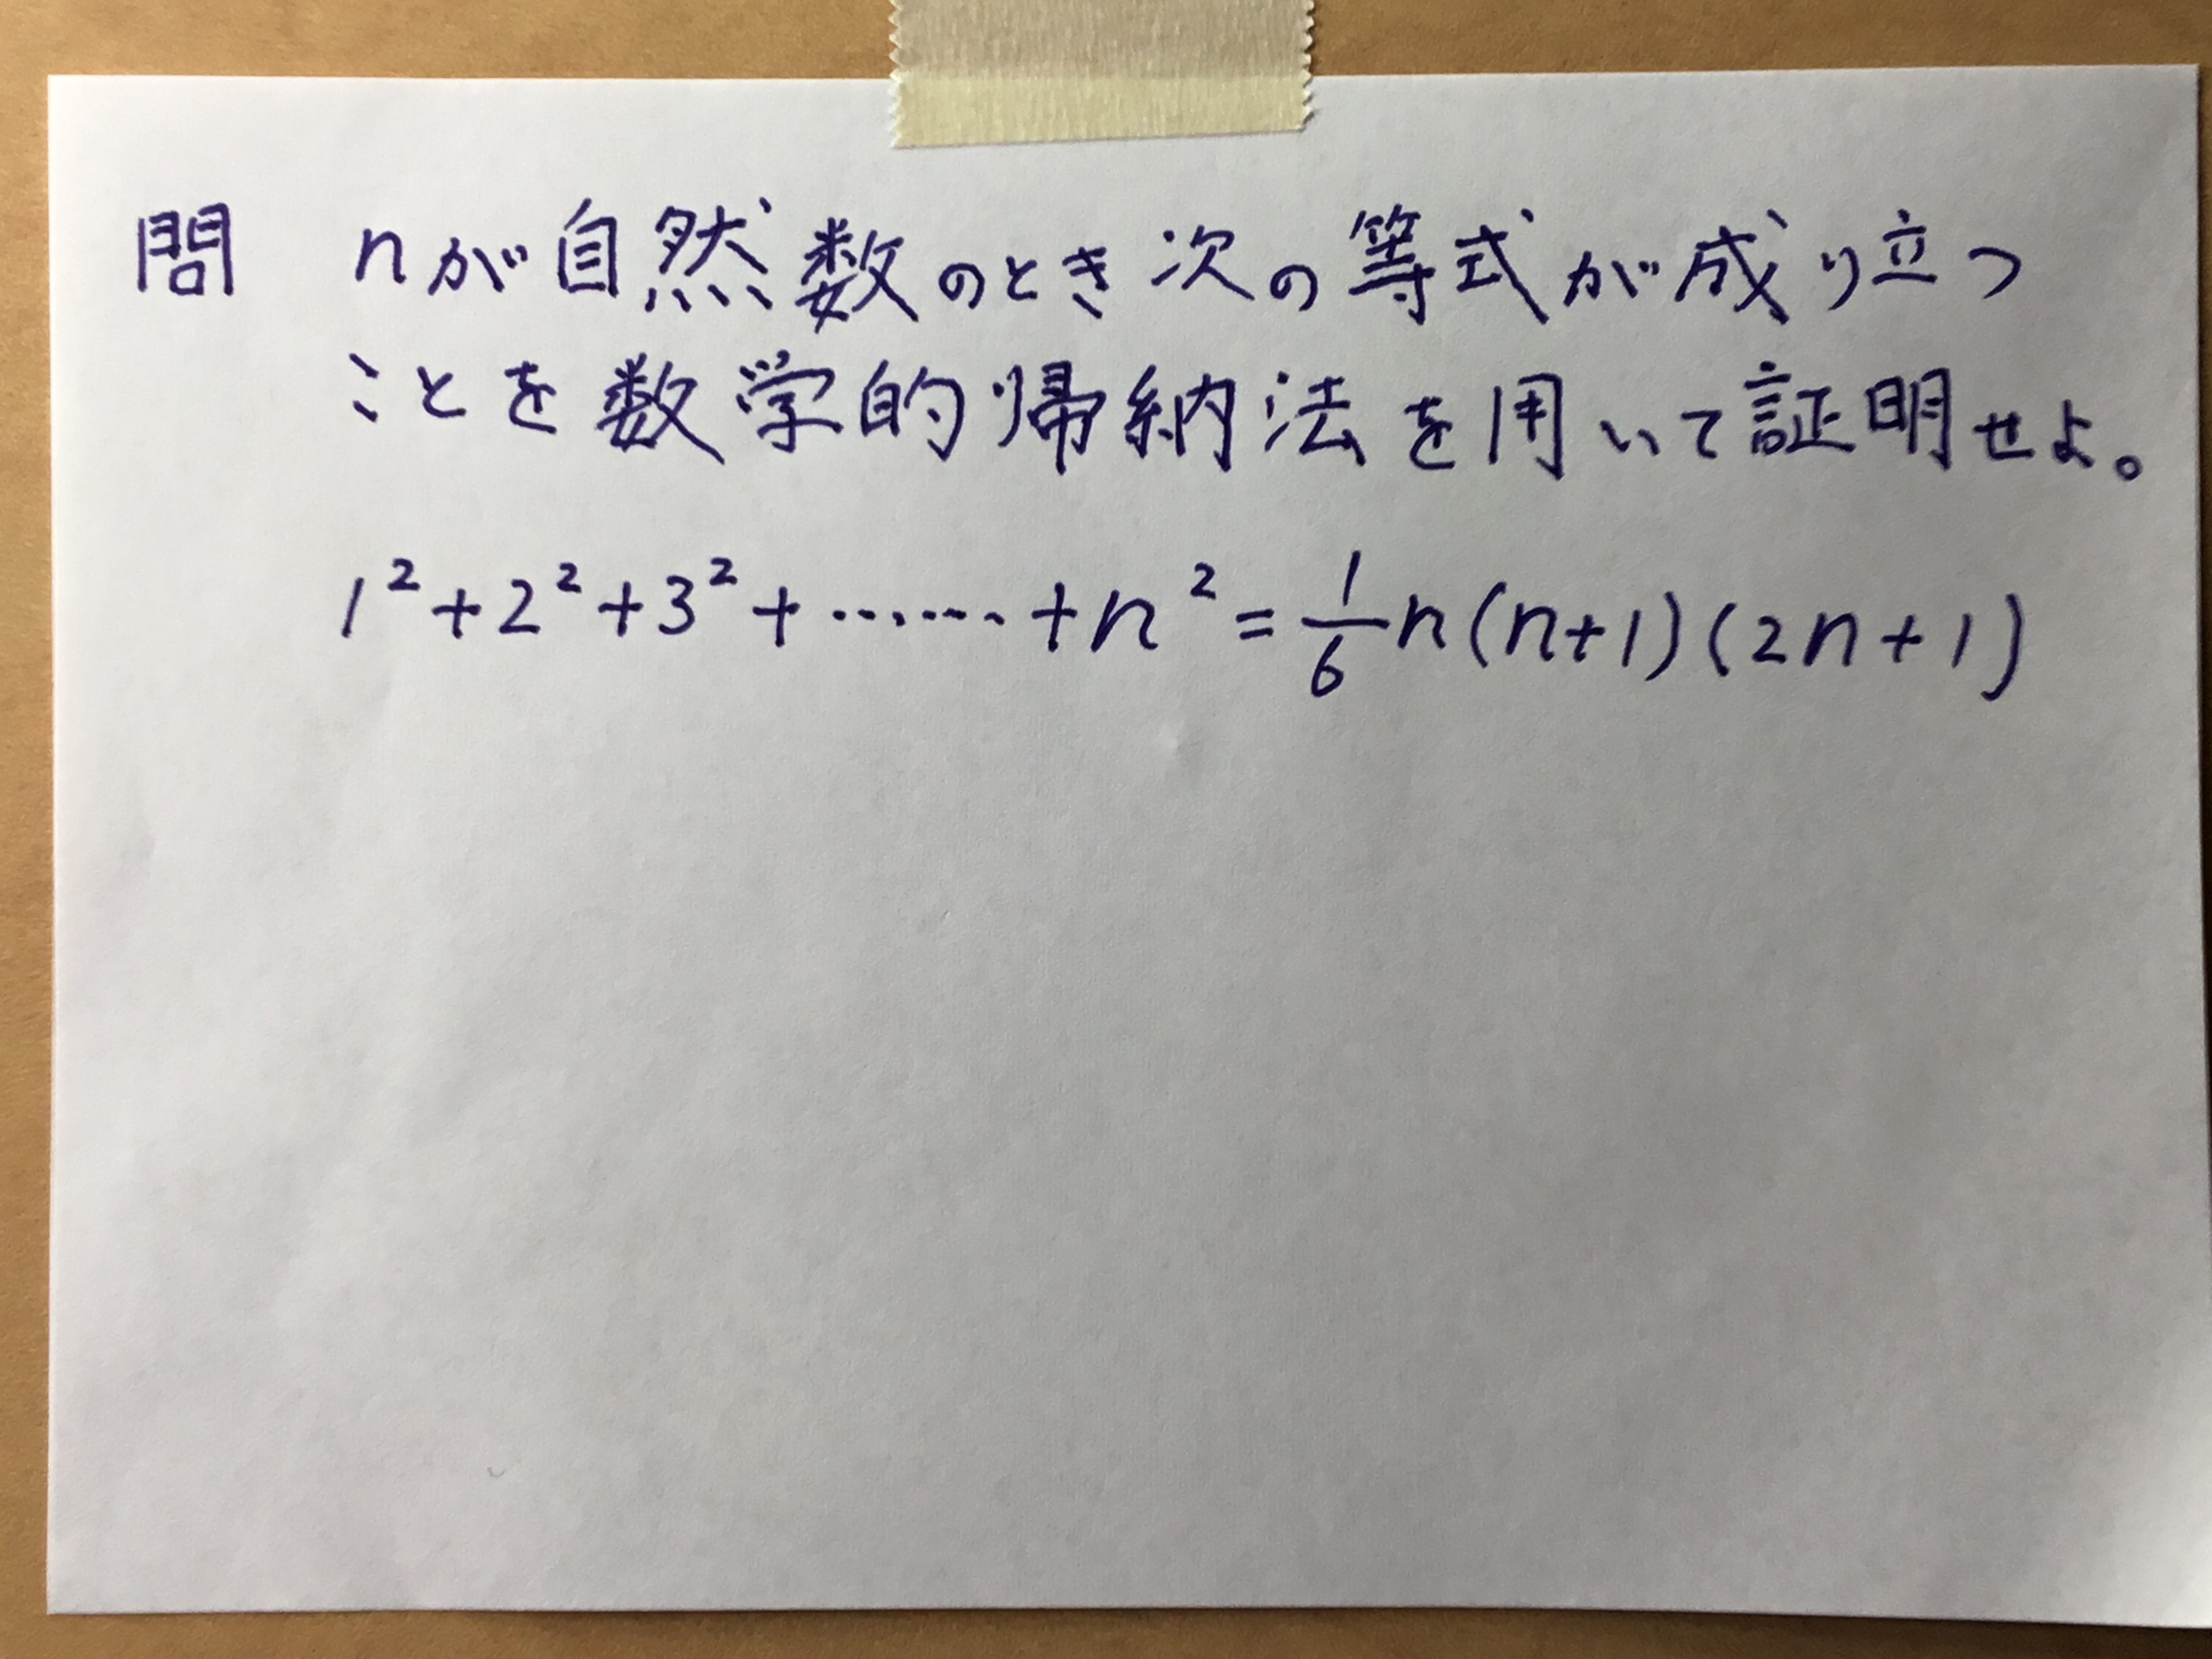 問 nが自然数のとき次の等式が成り立つ
ことを数学的帰納法を用いて証明せよ。
1²+2²+3²+……+n²=1/6 n(n+1)(2n+1)